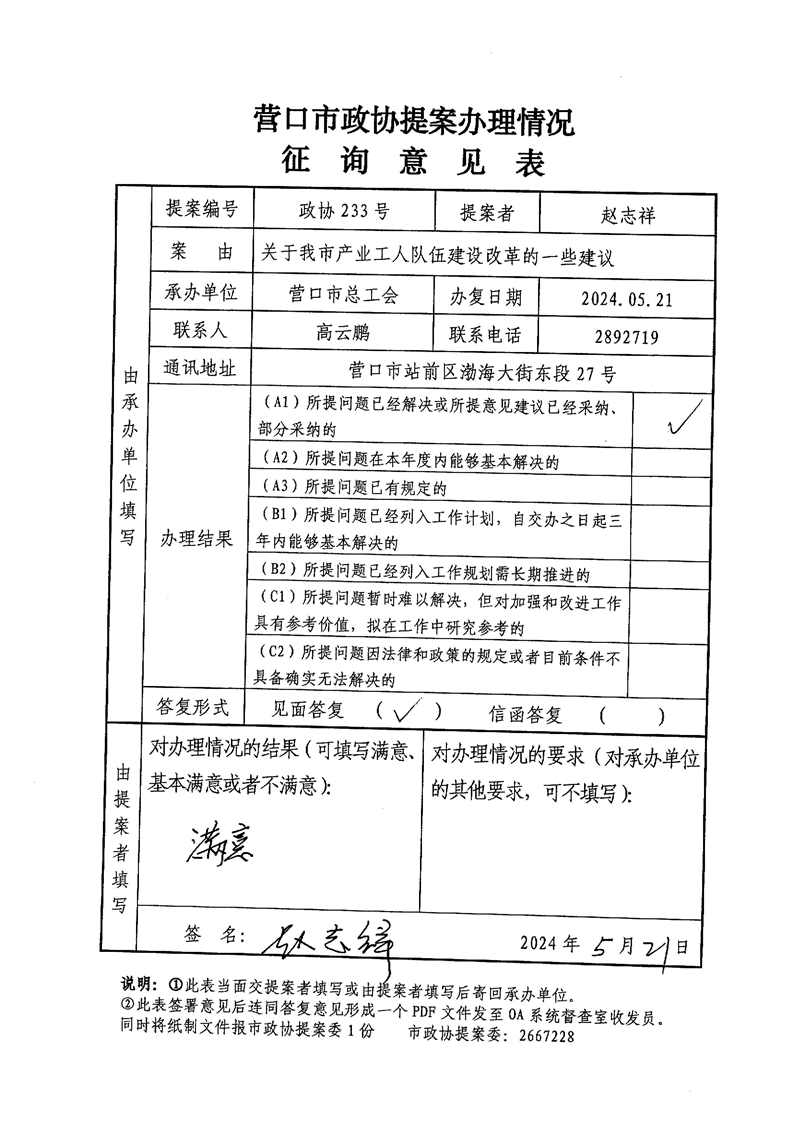 营口市政协提案办理情况
征询意见表
由承办单位填写
提案编号 政协 233 号 提案者 赵志祥
案 由 关于我市产业工人队伍建设改革的一些建议
承办单位 营口市总工会 办复日期 2024.05.21
联系人 高云鹏 联系电话 2892719
通讯地址 营口市站前区渤海大街东段 27 号
办理结果
(A1)所提问题已经解决或所提意见建议已经采纳、 ✓
部分采纳的
(A2)所提问题在本年度内能够基本解决的
(A3)所提问题已有规定的
(B1)所提问题已经列入工作计划，自交办之日起三
年内能够基本解决的
(B2)所提问题已经列入工作规划需长期推进的
(C1)所提问题暂时难以解决，但对加强和改进工作
具有参考价值，拟在工作中研究参考的
(C2)所提问题因法律和政策的规定或者目前条件不
具备确实无法解决的
答复形式 见面答复 (✓) 信函答复 ( )
由提案者填写
对办理情况的结果(可填写满意、
基本满意或者不满意):
满意
对办理情况的要求(对承办单位
的其他要求，可不填写):
签 名: 赵志祥 2024 年 5 月 21 日
说明：①此表当面交提案者填写或由提案者填写后寄回承办单位。
②此表签署意见后连同答复意见形成一个 PDF 文件发至 OA 系统督查室收发员。
同时将纸制文件报市政协提案委 1 份 市政协提案委：2667228